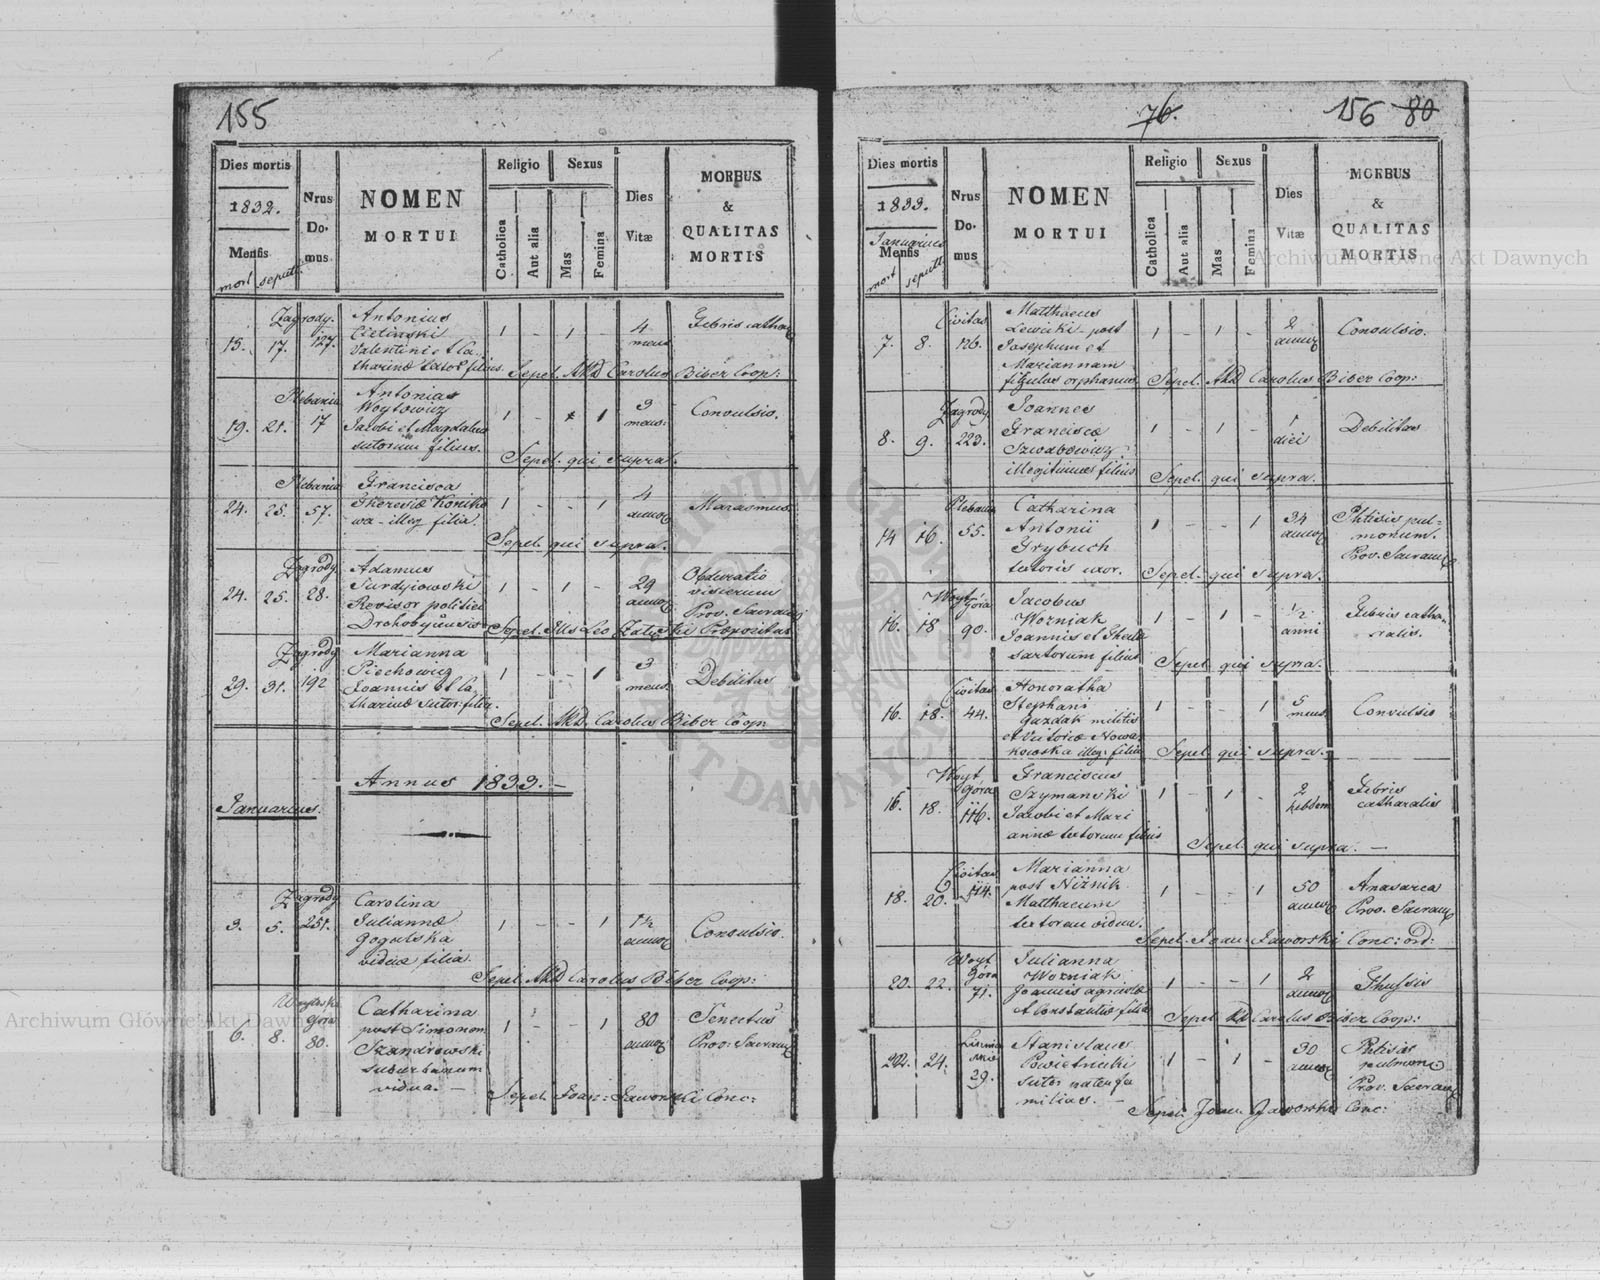 155
Dies mortis
1832.
Mensis
mort. sepult.
Nrus Domus
NOMEN
MORTUI
Religio
Catholica
Aut alia
Sexus
Mas
Femina
Dies
Vitæ
MORBUS
&
QUALITAS
MORTIS
Zagrody.
15. 17. 127.
Antonius
Valentini et Ca
tharinæ filius.
1 - 1 -
4
mens.
Febris cathar
Sepel. Carolus Biber Coop:
Plebania
19. 21. 17
Antonius
Woytowicz
Jacobi et Magdalena
sutorum filius.
1 - 1
3
mens.
Convulsio.
Sepel. qui supra.
Plebania
24. 25. 57.
Francisca
Theresiæ
wa - illeg filia.
1 - - 1
4
annor
Marasmus
Sepel. qui supra.
Zagrody
24. 25. 28.
Adamus
Revisor politiei
1 - 1 -
29
annor
Obduratio
viscerum
Prov. Sacram
Sepel. Leo Zaleski Propositus
Zagrody
29. 31. 192
Marianna
Piechowicz
Joannis et Ca
tharinæ Sutor: filia.
1 - - 1
3
mens.
Debilitas
Sepel. Carolus Biber Coop
Annus 1833. -
Januarius.
Zagrody
3. 5. 251.
Carolina
Juliannæ
Gogulska
viduæ filia.
1 - - 1
1½
annor
Convulsio.
Sepel. Carolus Biber Coop:
Góra
6. 8. 80.
Catharina
post Simonem
Szandrowski
suburbanum
vidua. -
1 - - 1
80
annor
Senectus
Prov: Sacram
Sepel. Joan: Jaworski Conc:
76.
156 80
Dies mortis
1833.
Januarius
Mensis
mort. sepult.
Nrus Domus
NOMEN
MORTUI
Religio
Catholica
Aut alia
Sexus
Mas
Femina
Dies
Vitæ
MORBUS
&
QUALITAS
MORTIS
Civitas
7. 8. 126.
Matthaeus
Lewicki - post
Josephum et
Mariannam
orphanus
1 - 1 -
2
annor
Convulsio.
Sepel. Carolus Biber Coop:
Zagrody
8. 9. 223.
Joannes
Franciscæ
Szwabowicz
illegitimus filius
1 - 1 -
1
diei
Debilitas
Sepel. qui supra.
Plebania
14 16. 55.
Catharina
Antonii
Grybuch
textoris uxor.
1 - - 1
34
annor
Phtisis pul-
monum.
Prov. Sacram
Sepel. qui supra.
Woyt
Góra
16. 18 90.
Jacobus
Wozniak
Joannis et Thecla
sartorum filius
1 - 1 -
½
anni
Febris catha-
ralis.
Sepel. qui supra.
Civitas
16. 18. 44.
Honoratha
Stephani
Gazdak militis
et Victoriæ Nowa
kowska illeg: filia
1 - - 1
5
mens
Convulsio
Sepel. qui supra.
Woyt
Góra
16. 18. 116.
Franciscus
Szymanski
Jacobi et Mari
annæ textorum filius
1 - 1 -
2
hebdom
Febris
catharalis
Sepel. qui supra. -
Civitas
18. 20. 114.
Marianna
post Niznik
Matthaeum
textorem vidua.
1 - - 1
50
annor
Anasarca
Prov. Sacram
Sepel. Joan. Jaworski Conc: ord:
Woyt
Góra
20. 22. 71.
Julianna
Wozniak
Joannis agricolæ
et Constantiæ filia
1 - - 1
2
annor
Thussis
Sepel. Carolus Biber Coop:
22. 24. 29.
Stanislaus
Powietnicki
Sutor pater fa
milias. -
1 - 1 -
30
annor
Phtisis
pulmonu
Prov. Sacram
Sepel. Joan. Jaworski Conc:
Archiwum Główne Akt Dawnych
Archiwum Główne Akt Dawnych
ARCHIWUM GŁÓWNE AKT DAWNYCH